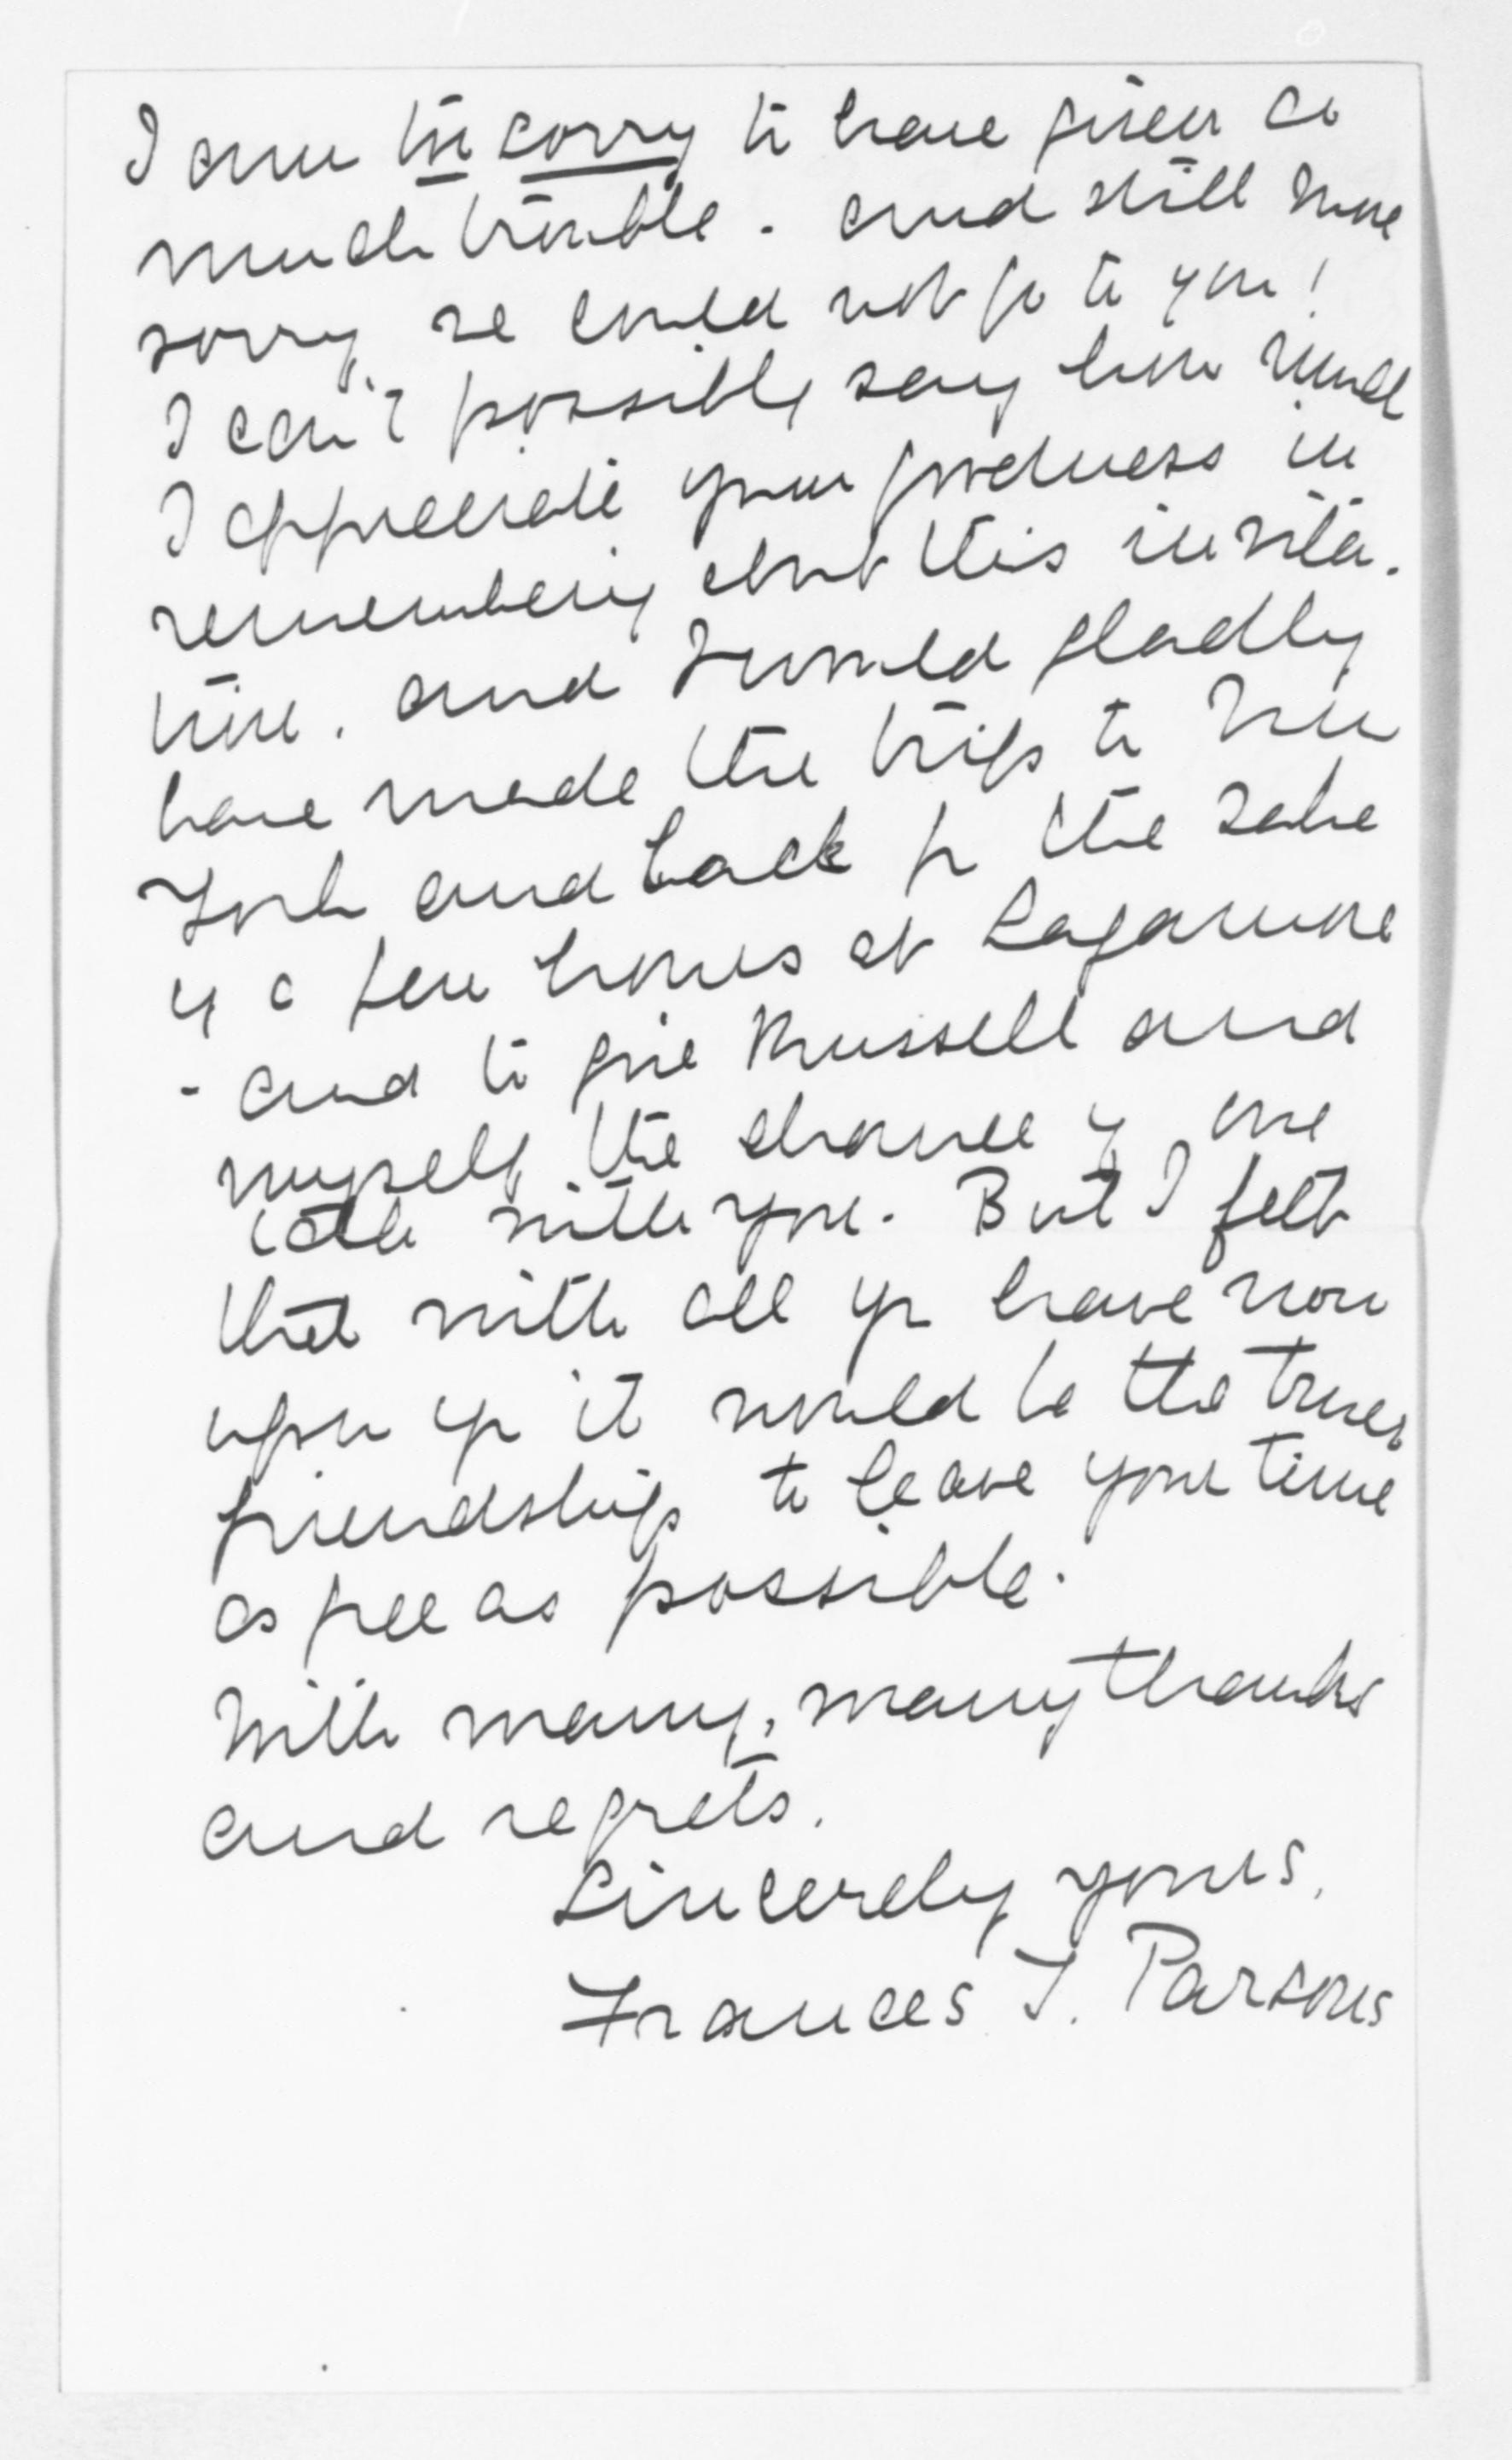 I am too sorry to have given so
much trouble. and still more
sorry we could not go to you!
I can't possibly say how much
I appreciate your goodness in
remembering about this invita-
tion. and I would gladly
have made the trip to New
York and back for the sake
of a few hours at Sagamore
- and to give Russell and
myself the chance of one
talk with you. But I felt
that with all yr have now
upon yr it would be the truer
friendship to leave your time
as free as possible.
With many, many thanks
and regrets.
Sincerely yours,
Frances T. Parsons